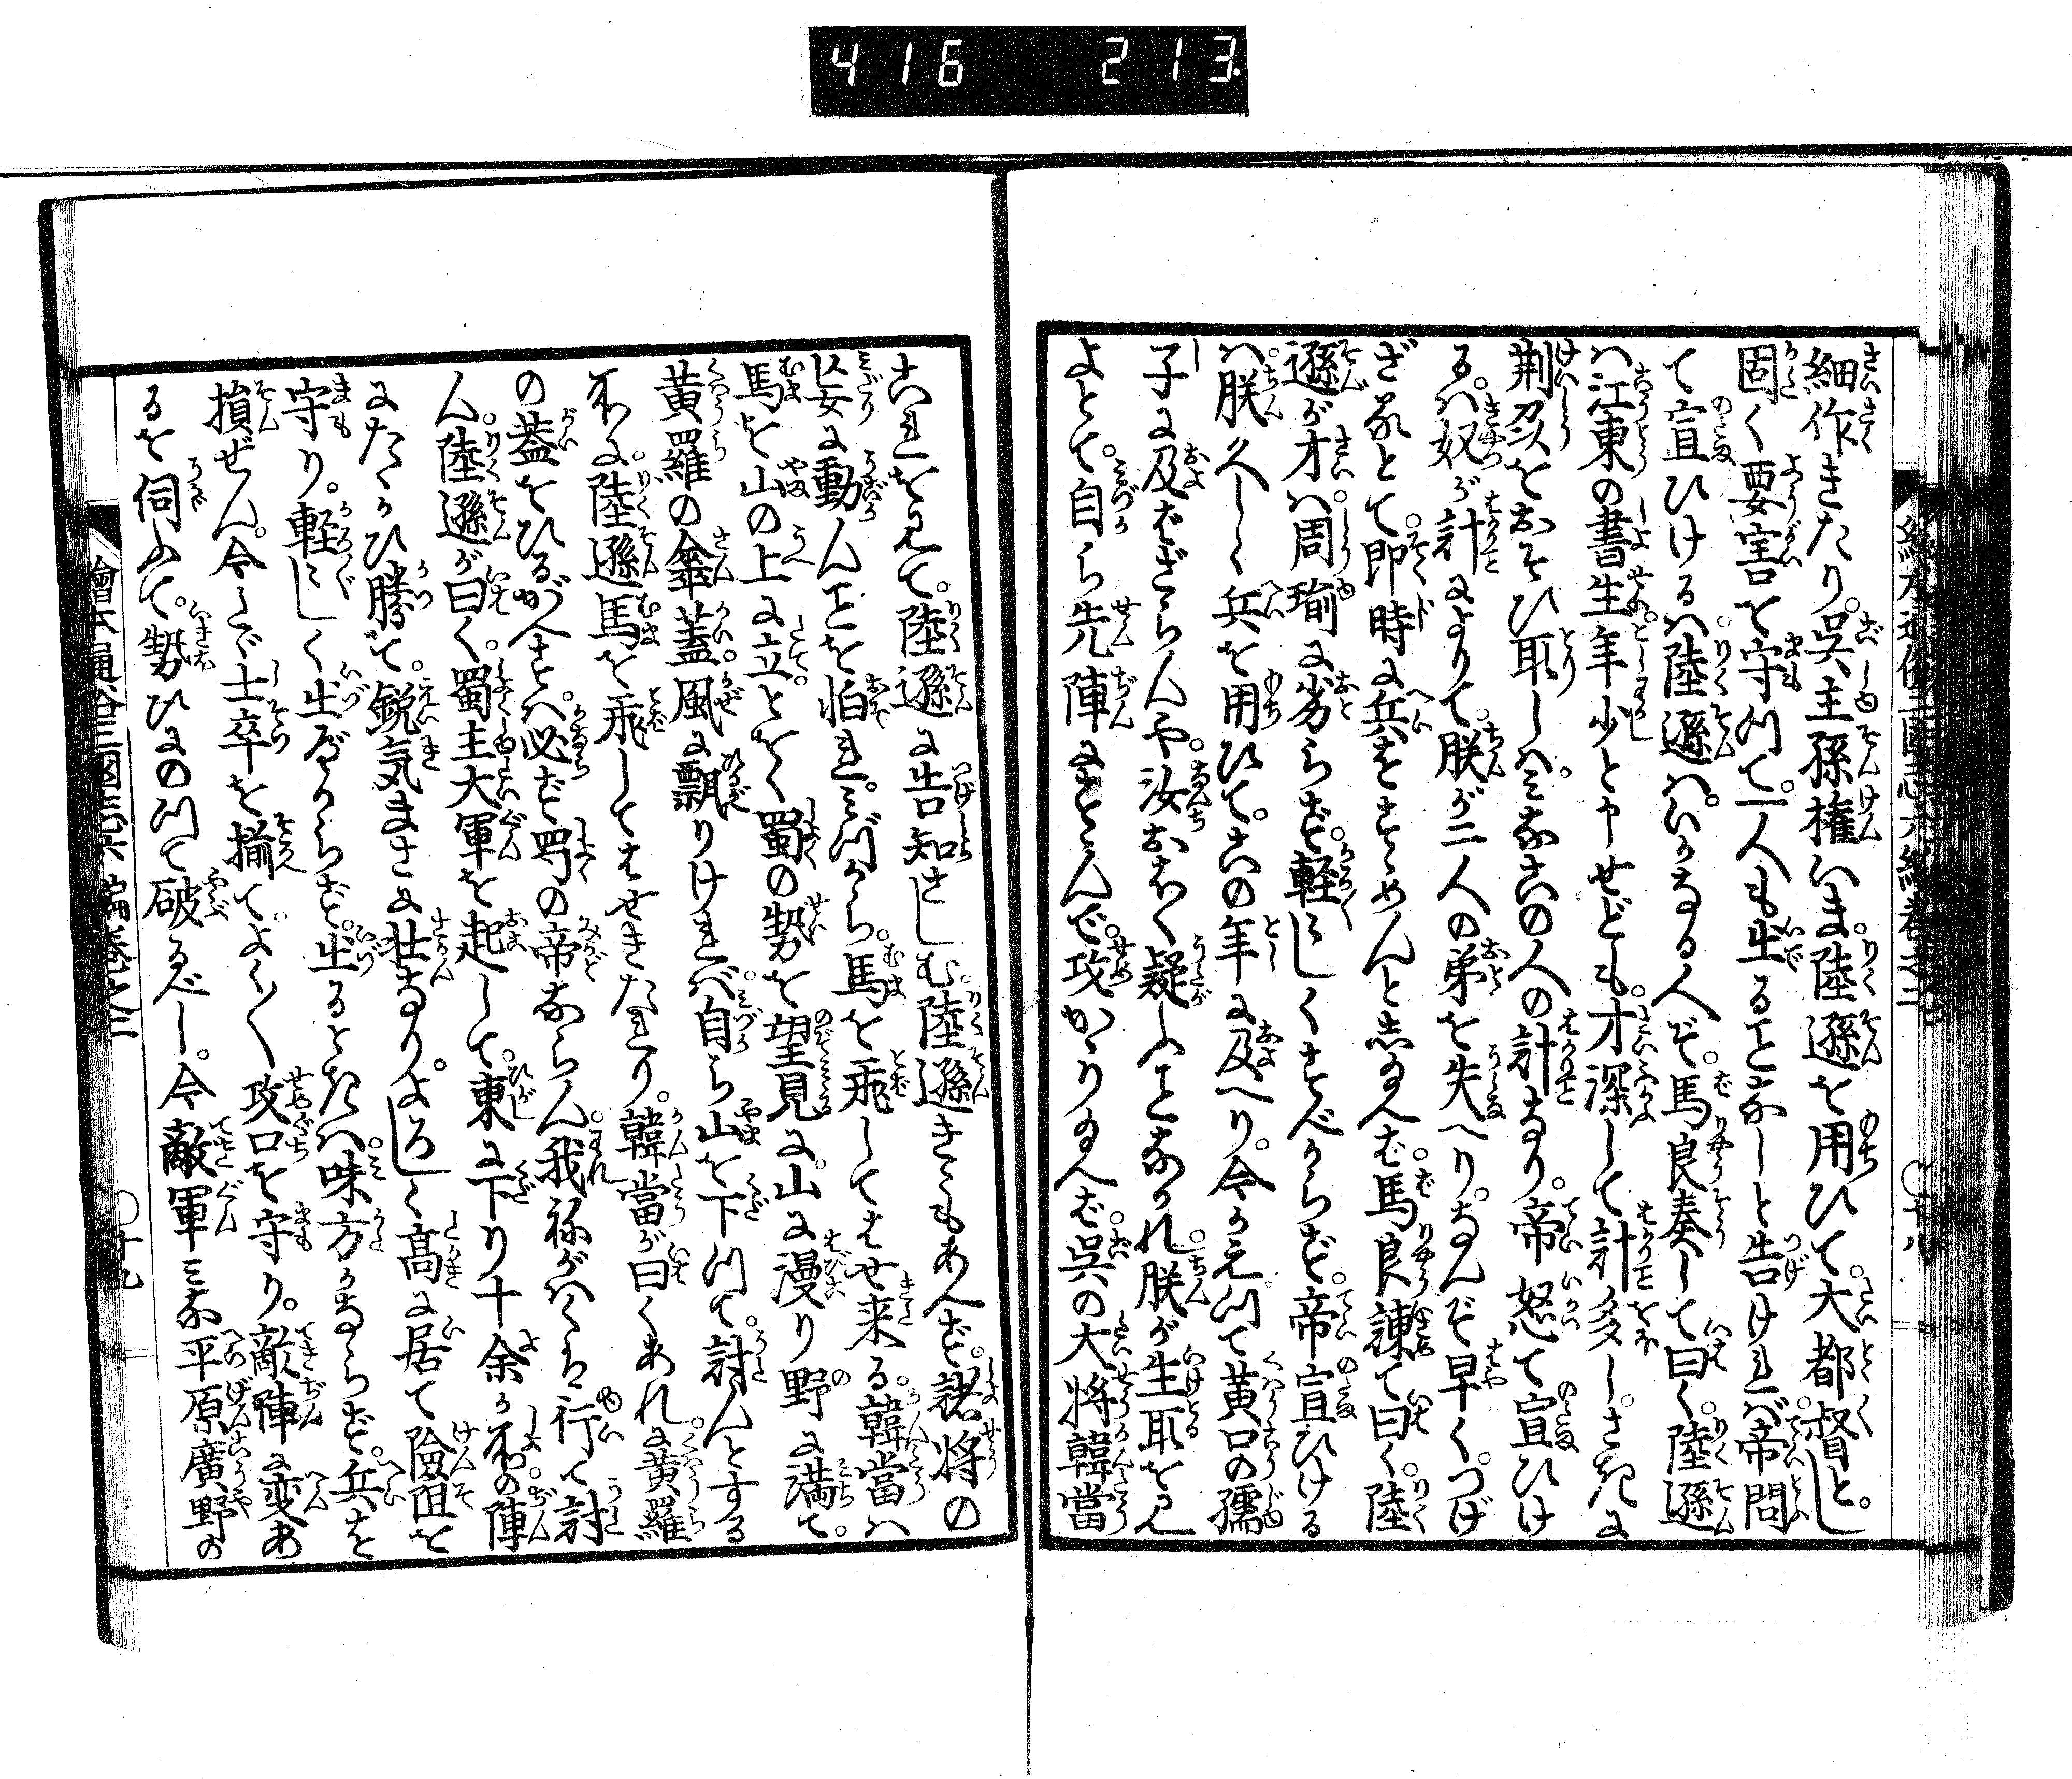 416 213
細作きたり。呉主孫権いま。陸遜を用ひて。大都督とし。
固く要害を守つて。一人も出ることなしと告ければ。帝問
て宣ひけるハ。陸遜ハ。いかなる人ぞ。馬良奏して曰く。陸遜
ハ江東の書生。年少と申せども。才深して計多し。さきに
荊州をおそひ取しハ。みなこの人の計なり。帝怒て宣ひけ
るハ。奴が計によりて。朕が二人の弟を失へり。なんぞ早く。つげ
ざるとて。即時に兵をすゝめんとし給へば。馬良諫て曰く。陸
遜が才ハ。周瑜に劣らず。軽〻しくすべからず。帝宣ひける
ハ。朕久しく兵を用ひて。この年に及べり。今かへつて黄口の孺
子に及ばざらんや。汝おほく疑ふことなかれ。朕が生取を見
よとて。自ら先陣にすゝんで。攻かゝり給へば。呉の大将韓當
これを見て。陸遜に告知さしむ。陸遜きくもあへず。諸将の
妄に動んことを怕れ。みづから。馬を飛してはせ来る。韓當ハ
馬を山の上に立をく。蜀の勢を望見に。山に漫り野に満て。
黄羅の傘蓋。風に飄りければ。自ら山を下つて。討んとする
所に。陸遜馬を飛してはせきたれり。韓當が曰くあれに。黄羅
の蓋をひるがへすハ。必ず蜀の帝ならん。我ねがハくハ行て討
ん。陸遜が曰く。蜀主大軍を起して。東に下り十余か所の陣
にたゝかひ勝て。鋭気まさに壮なり。よろしく高に居て險阻を
守り。軽〻しく出べからず。出るときハ。味方かならず。兵を
損ぜん。今たゞ士卒を揃て。よく〱攻口を守り。敵陣に変あ
るを伺ふて。勢ひにのつて破るべし。今敵軍みな平原廣野の
繪本通俗三國志六編巻之三
〇十八
繪本通俗三國志六編巻之三
〇十九